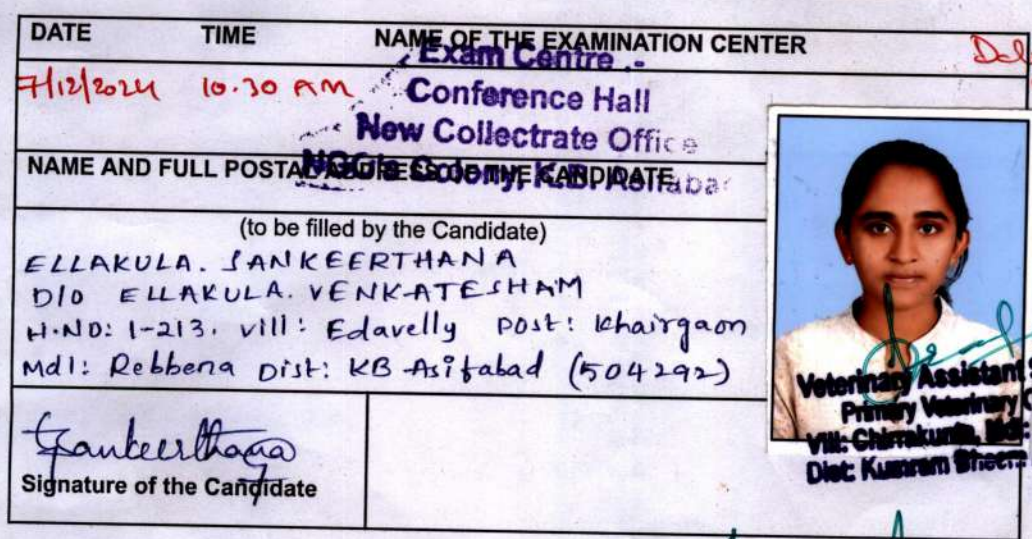 DATE TIME NAME OF THE EXAMINATION CENTER
7/12/2024 10.30 AM
Exam Centre :-
Conference Hall
New Collectrate Office
Colony, K.B. Asifabad
NAME AND FULL POSTAL ADDRESS OF THE CANDIDATE
(to be filled by the Candidate)
ELLAKULA. SANKEERTHANA
D/O ELLAKULA. VENKATESHAM
H.NO: 1-213. vill: Edavelly post: Khairgaon
Mdl: Rebbena Dist: KB Asifabad (504292)
Sankeerthana
Signature of the Candidate
Veterinary Assistant S
Primary Veterinary
Vill: Chirrakunta, Mdl:
Dist: Kumram Bheem